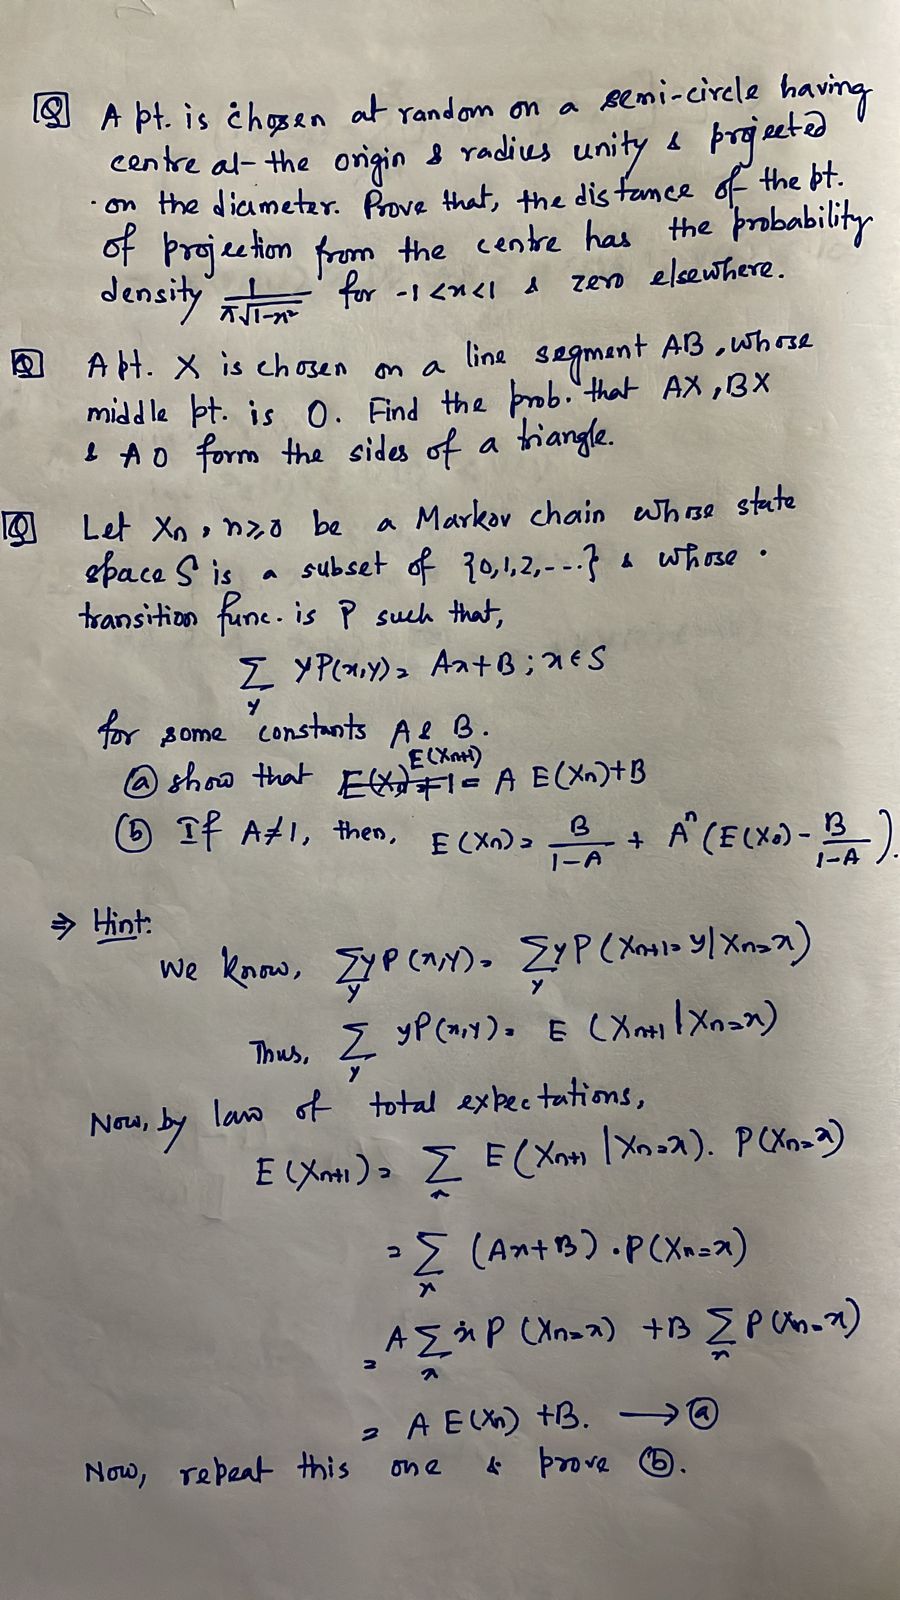 Q A pt. is chosen at random on a semi-circle having
centre at the origin & radius unity & projected
on the diameter. Prove that, the distance of the pt.
of projection from the centre has the probability
density 1/(π√(1-x²)) for -1<x<1 & zero elsewhere.
Q A pt. X is chosen on a line segment AB, whose
middle pt. is O. Find the prob. that AX, BX
& AO form the sides of a triangle.
Q Let Xn, n≥0 be a Markov chain whose state
space S is a subset of {0,1,2,---} & whose
transition func. is P such that,
∑_y yP(x,y) = Ax+B ; x∈S
for some constants A & B.
(a) show that E(Xn+1) = A E(Xn)+B
(b) If A≠1, then, E(Xn) = B/(1-A) + Aⁿ (E(X₀) - B/(1-A)).
⇒ Hint:
We know, ∑_y yP(x,y) = ∑_y yP(Xn+1=y|Xn=x)
Thus, ∑_y yP(x,y) = E (Xn+1|Xn=x)
Now, by law of total expectations,
E(Xn+1) = ∑_x E(Xn+1|Xn=x). P(Xn=x)
= ∑_x (Ax+B).P(Xn=x)
= A∑_x xP(Xn=x) + B∑_x P(Xn=x)
= A E(Xn) +B. → (a)
Now, repeat this one & prove (b).